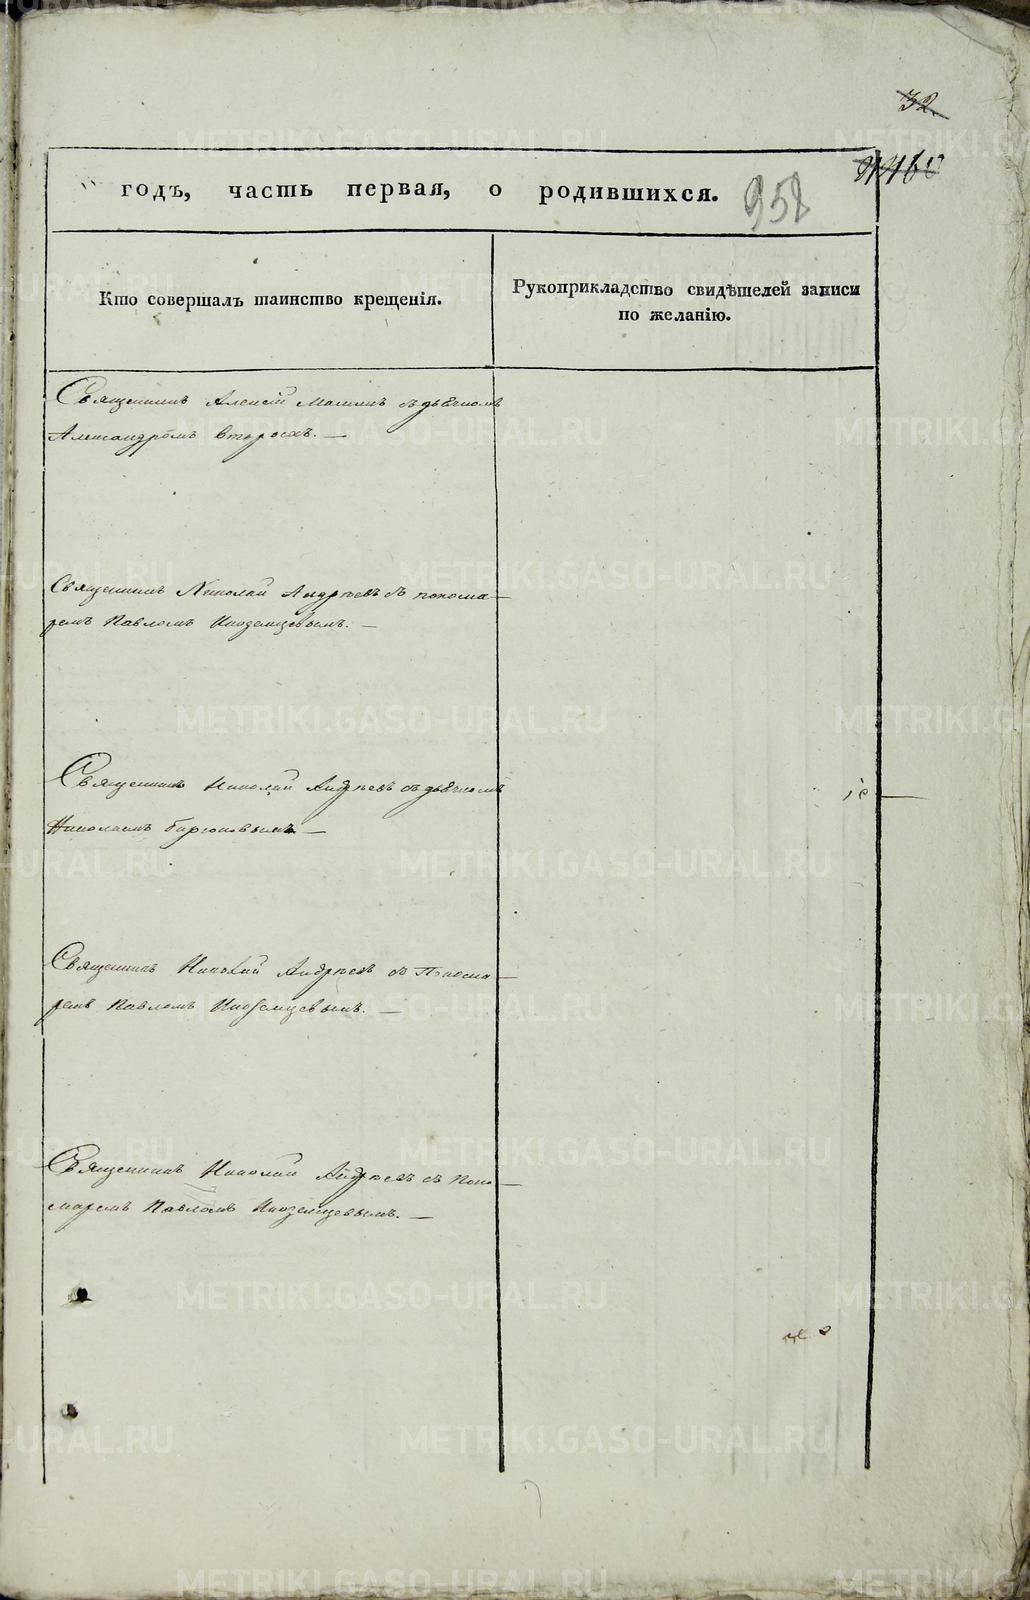 32.
958
годъ, часть первая, о родившихся.
Кто совершалъ таинство крещенія.
Рукоприкладство свидѣтелей записи
по желанію.
Священникъ Алексій съ дьячкомъ
Александромъ
Священникъ Николай Андреевъ съ понома-
ремъ Павломъ Иноземцевымъ. —
Священникъ Николай Андреевъ съ дьячкомъ
Николаемъ Бирюковымъ —
Священникъ Николай Андреевъ съ Понома-
ремъ Павломъ Иноземцевымъ. —
Священникъ Николай Андреевъ съ Поно-
маремъ Павломъ Иноземцевымъ. —
METRIKI.GASO-URAL.RU